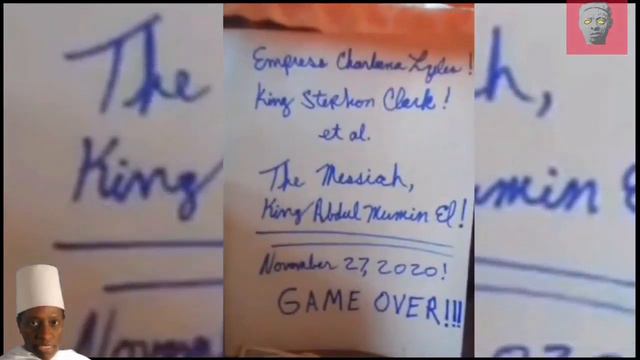 Empress Charleena Lyles!
King Stephon Clark!
et al.
The Messiah,
King Abdul Mumin El!
November 27, 2020!
GAME OVER!!!